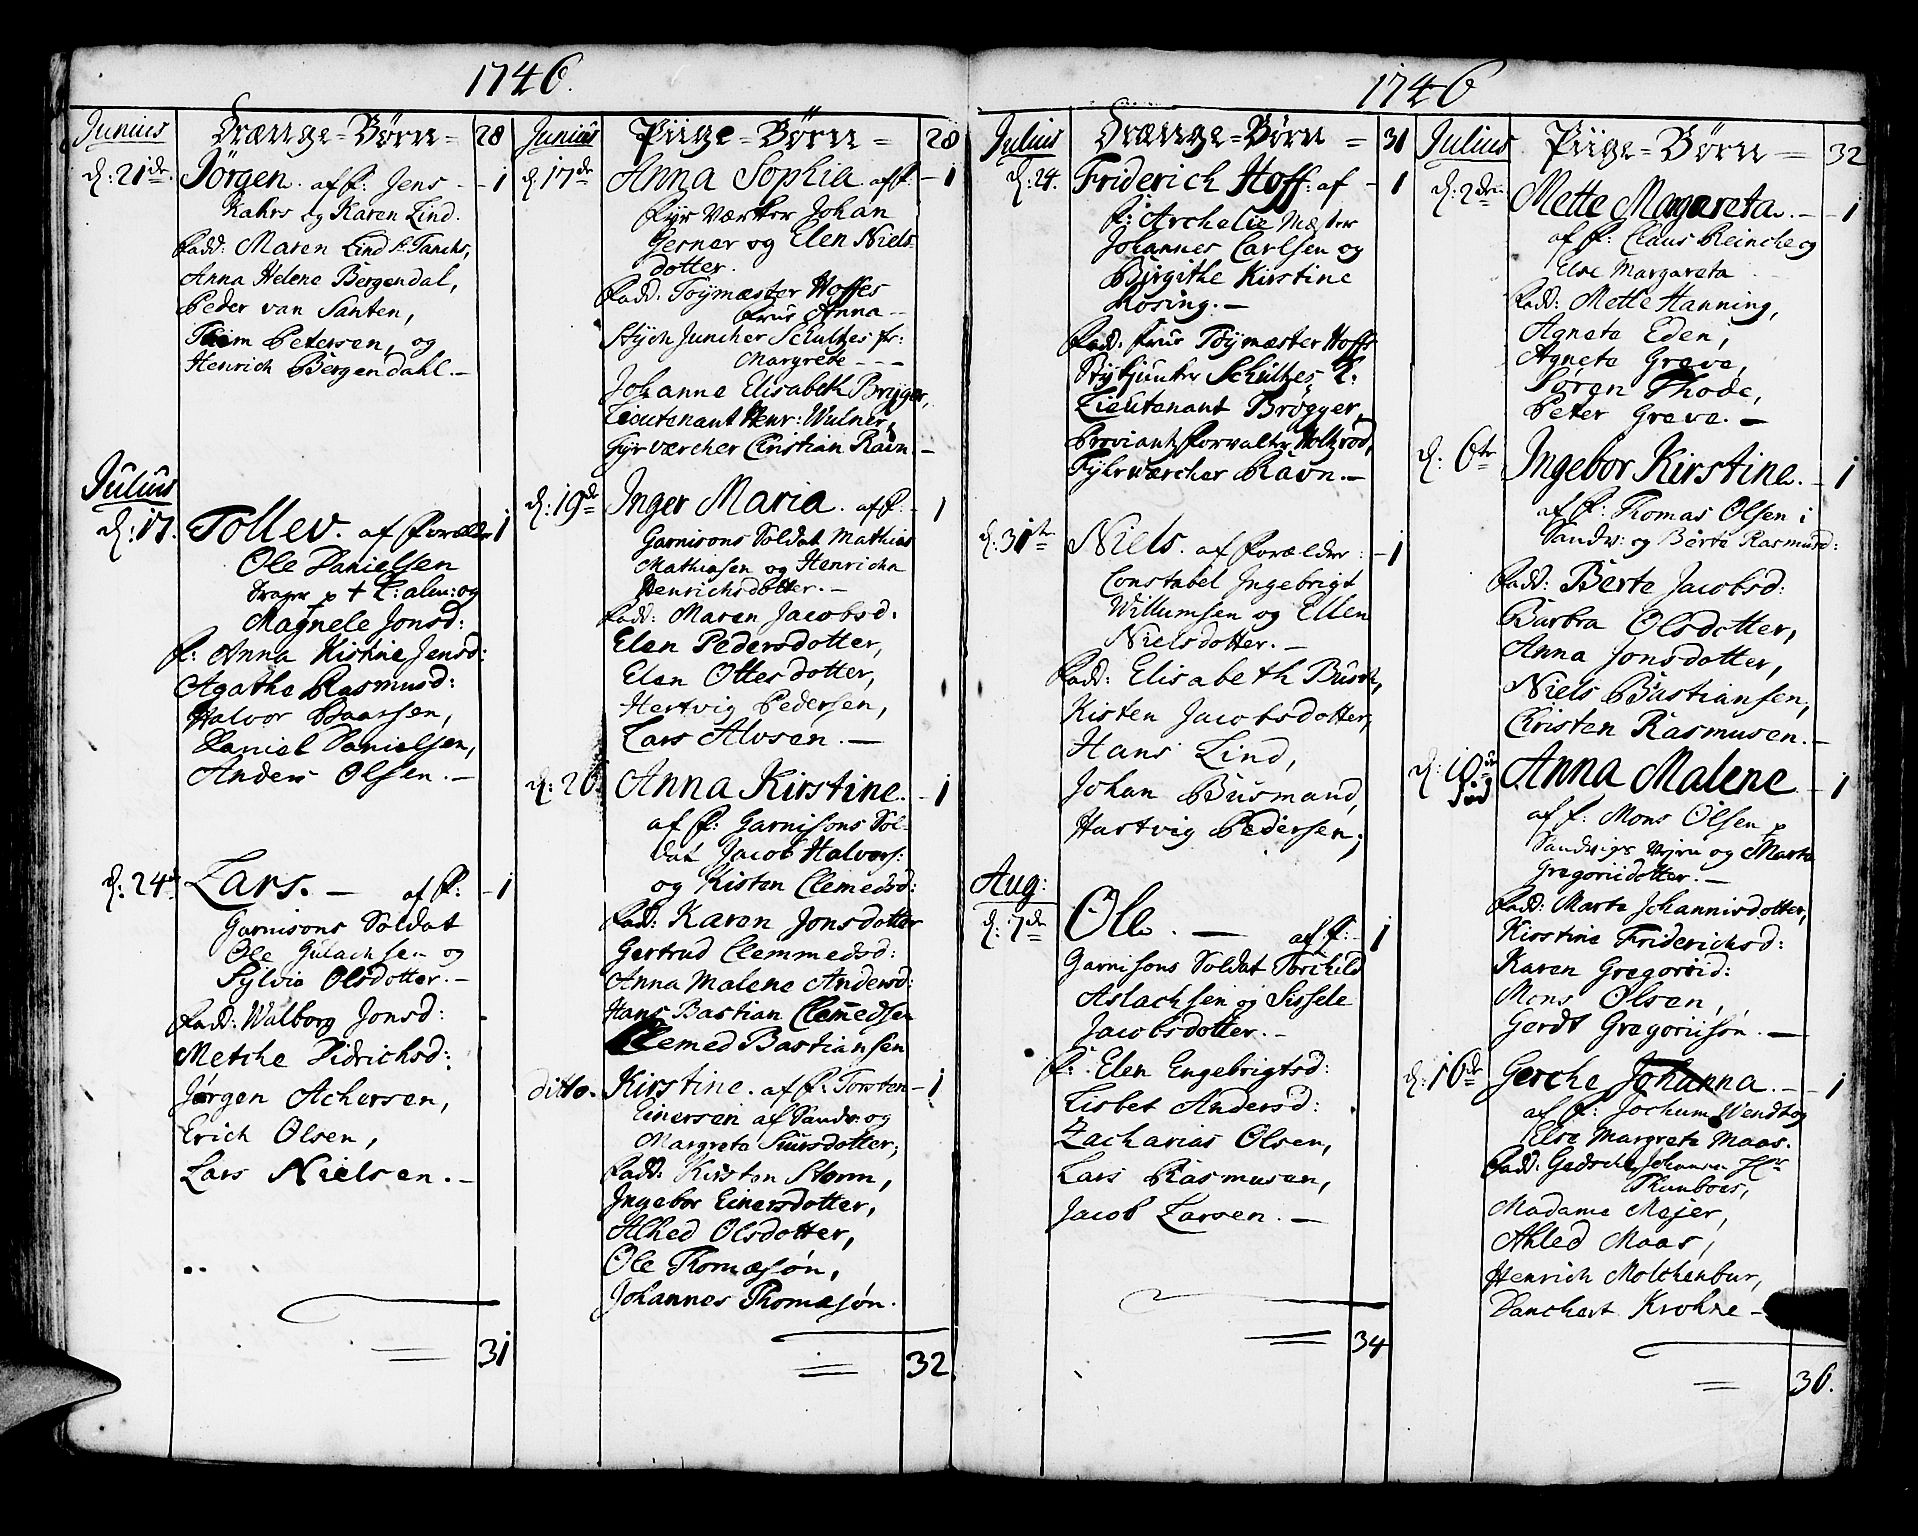 1746.
Junius
Drænge=Børn=
28
d: 21de.
Jörgen. af f: Jens - 1
Kahrs og Karen Lind.
Fadd: Maren Lind
Anna Helene Bergendal,
Peder van Santen,
Petersen, og
Henrich Bergendahl.-
Julius
d: 17.
Tollev. af Forælder 1
Ole Danielsen
Drager og
Magnele Jonsd:
F: Anna Kistine Jensd:
Agathe Rasmusd:
Halvor Baarsen,
Daniel Danielsen,
Anders Olsen.-
d: 24de
Lars. - af f: - 1
Garnisons Soldat
Ole Gulachsen og
Sylvie Olsdotter.-
Fadd: Walborg Jonsd:
Metche Didrichsd:
Jörgen Achersen,
Erich Olsen,
Lars Nielsen.-
31
Junius
Piige=Børn=
28
d: 17de
Anna Sophia af f: - 1
Fyr Værker Johan
Gerner og Elen Niels
dotter.
Fadd. Töymæster Hoffes
Frus Anna-
Stych Juncher Schultzes fr:
Margrete - - -
Johanne Elisabeth Bryger,
Lieutenant Henr: Wulner,
Fyrværcher Christian Ravn.-
d: 19de
Inger Maria. af f: - 1
Garnisons Soldat Mathias
Mathiasen og Henricha
Henrichsdotter.-
Fadd: Maren Jacobsd:
Elen Pedersdotter,
Elen Ottesdotter,
Hertvig Pedersen,
Lars Alvsen.-
d: 26
Anna Kirstine. - 1
af f: Garnisons Sol-
dat Jacob Halvors:
og Kisten Clemedsd:
Fadd: Karen Jonsdotter
Gertrud Clemmedsd:
Anna Malene Andersd:
Hans Bastian Clemedsen
Clemed Bastiansen
ditto.
Kirstine. af f: Torsten - 1
Einersen af Sandv: og
Margrete Siursdotter;
Fadd: Kirsten Storm,
Ingebor Einersdotter,
Alhed Olsdotter,
Ole Thomæsøn,
Johannes Thomæsøn.
32.
1746
Julius
Drænge=Børn=
31
d: 24.
Friderich Hoff: af - 1
f: Archelie Mæster
Johannes Carlsen og
Birgithe Kirstine
Rosing.-
Fadd. Frus Töymæster Hoffs
Stykjunker Schultzes K:
Lieutenant Brögger,
Proviant Forvalter Holtzrod,
Fyhrwærcher Ravn.-
d: 31te
Niels. af Forælder: - 1
Constabel Ingebrigt
Willumsen og Ellen
Nielsdotter.-
Fadd: Elisabeth Busch,
Kisten Jacobsdotter,
Hans Lind,
Johan Busmand,
Hartvig Pedersen;
Aug:
d: 7de
Ole. - af f: - 1
Garnisons Soldat Torchild
Aslachsen og Sissele
Jacobsdotter.-
F: Elen Engebrigtsd:
Lisbet Andersd:
Zacharias Olsen,
Lars Rasmusen,
Jacob Larsen.-
34
Julius
Piige=Børn=
32
d: 2den
Mette Magareta. - 1
af f: Claus Reinche og
Else Margareta
Fadd: Mette Hanning,
Agneta Eden,
Agneta Greve,
Søren Thode,
Peter Greve.-
d: 6te
Ingebor Kirstine. - 1
af f: Thomas Olsen i
Sandv: og Berte Rasmusd:
Fadd: Berte Jacobsd:
Barbra Olsdotter,
Anna Jonsdotter,
Niels Bastiansen,
Christen Rasmusen.-
d: 10
Anna Malene - 1
af f: Mons Olsen p
Sandvigs Vejen og Marta
Gregoriidotter.-
Fadd: Marte Johannisdotter,
Kirstine Friderichsd:
Karen Gregorsd:
Mons Olsen,
Gerdt Gregoriisøn.-
d: 16de
Gerche Johanna. - 1
af f: Jochum Wendt og
Else Margrete Maas.
Fadd: Gedsche Johansen
Thunboes,
Madame Mejer,
Ahled Maas,
Henrich Molchenbur,
Danchert Krohne-
36.